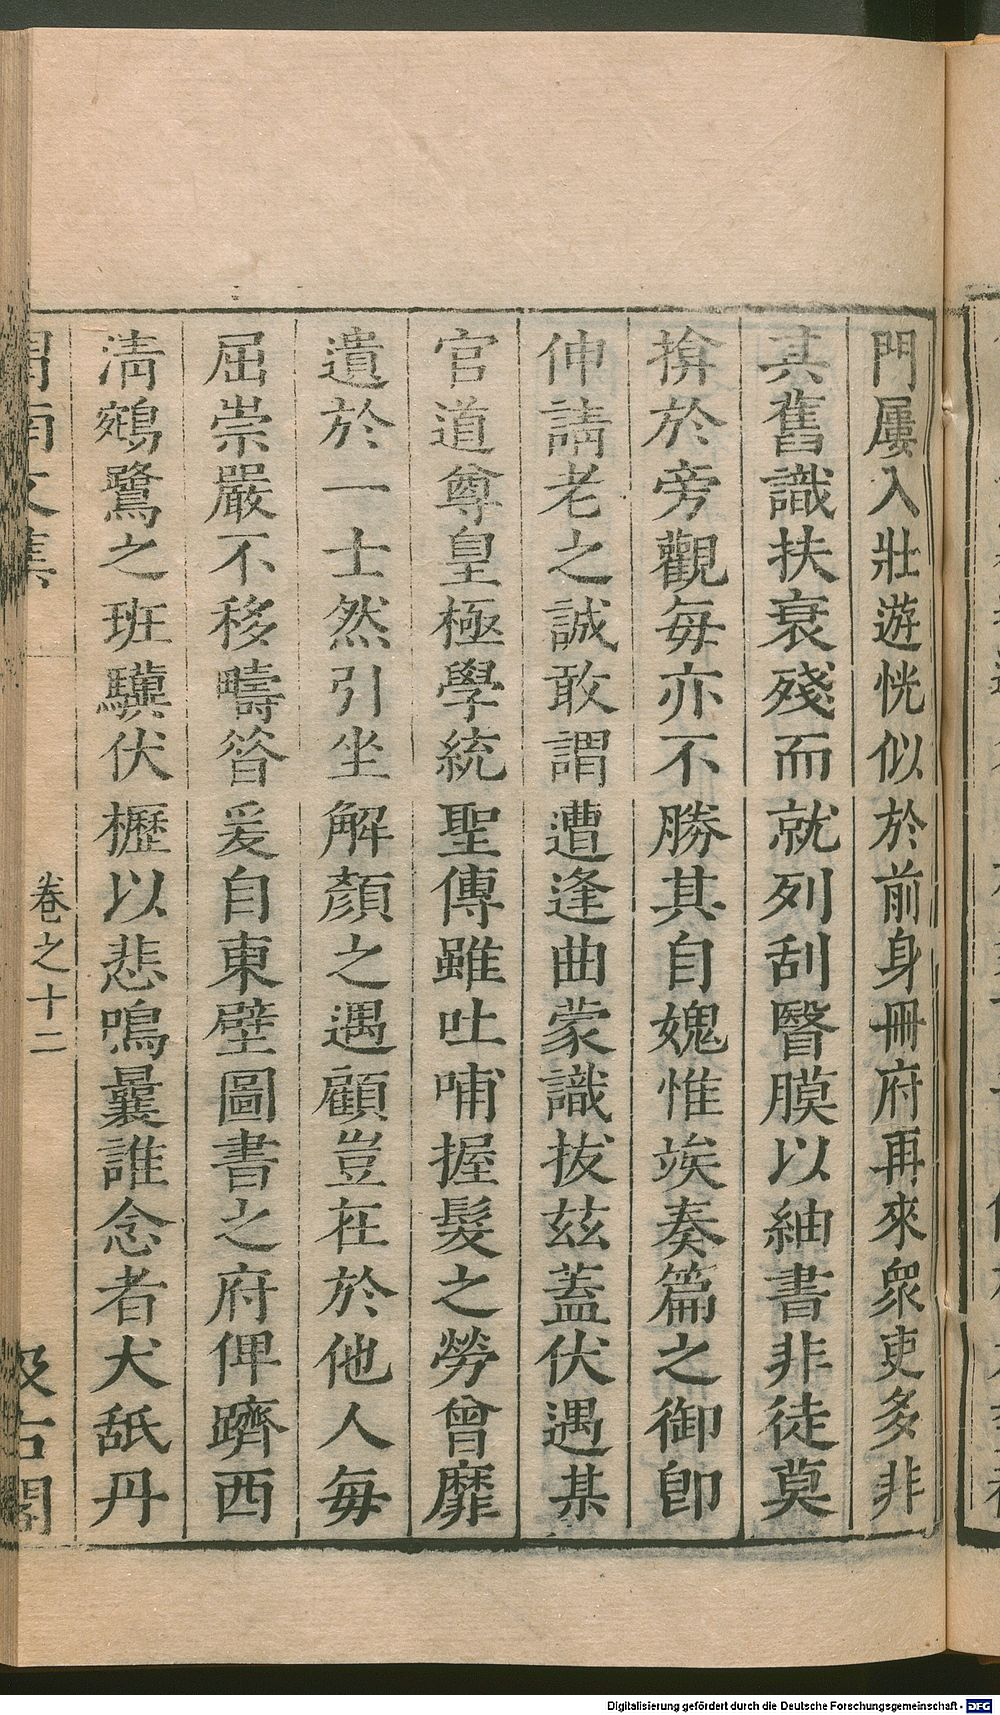 門屢入壯遊恍似於前身冊府再來衆吏多非
其舊識扶衰殘而就列刮瞖膜以紬書非徒莫
揜於旁觀每亦不勝其自媿惟竢奏篇之御卽
伸請老之誠敢謂遭逢曲蒙識拔兹蓋伏遇某
官道尊皇極學統聖傳雖吐哺握髮之勞曾靡
遺於一士然引坐解顏之遇顧豈在於他人每
屈崇嚴不移疇昔爰自東壁圖書之府俾躋西
淸鵷鷺之班驥伏櫪以悲鳴曩誰念者犬舐丹
渭南文集
卷之十二
汲古閣
Digitalisierung gefördert durch die Deutsche Forschungsgemeinschaft - DFG